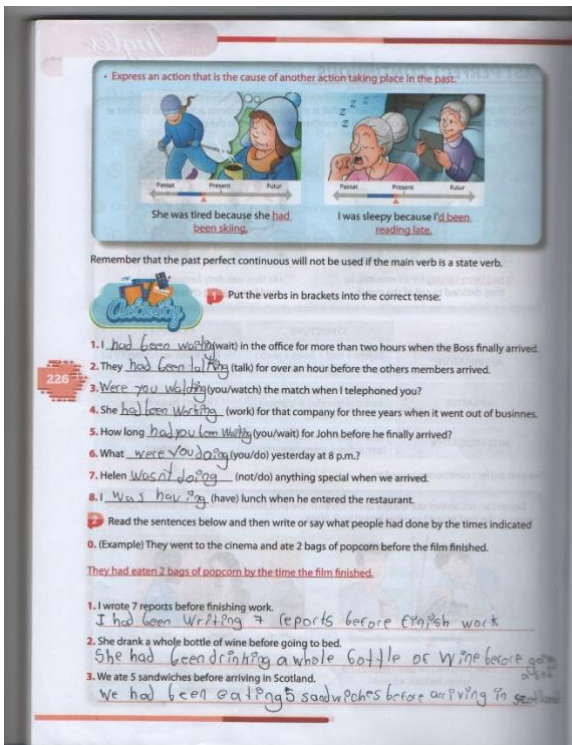 Ingles
• Express an action that is the cause of another action taking place in the past.
z z z z
Passat Present Futur
Passat Present Futur
She was tired because she had been skiing.
I was sleepy because I'd been reading late.
Remember that the past perfect continuous will not be used if the main verb is a state verb.
Activity
1 Put the verbs in brackets into the correct tense:
1. I had been waiting (wait) in the office for more than two hours when the Boss finally arrived.
2. They had been talking (talk) for over an hour before the others members arrived.
226
3. Were you watching (you/watch) the match when I telephoned you?
4. She had been working (work) for that company for three years when it went out of businnes.
5. How long had you been waiting (you/wait) for John before he finally arrived?
6. What were you doing (you/do) yesterday at 8 p.m.?
7. Helen wasn't doing (not/do) anything special when we arrived.
8. I was having (have) lunch when he entered the restaurant.
2 Read the sentences below and then write or say what people had done by the times indicated
0. (Example) They went to the cinema and ate 2 bags of popcorn before the film finished.
They had eaten 2 bags of popcorn by the time the film finished.
1. I wrote 7 reports before finishing work.
I had been writing 7 reports before finish work
2. She drank a whole bottle of wine before going to bed.
She had been drinking a whole bottle of wine before going
3. We ate 5 sandwiches before arriving in Scotland.
We had been eating 5 sandwiches before arriving in scotland